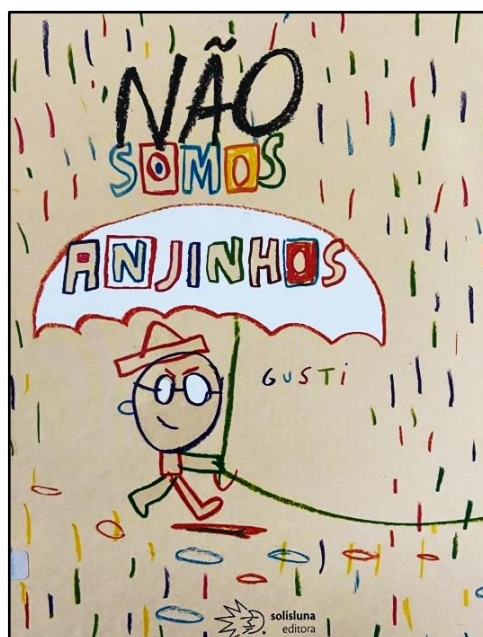 NÃO
SOMOS
ANJINHOS
GUSTi
solisluna
editora